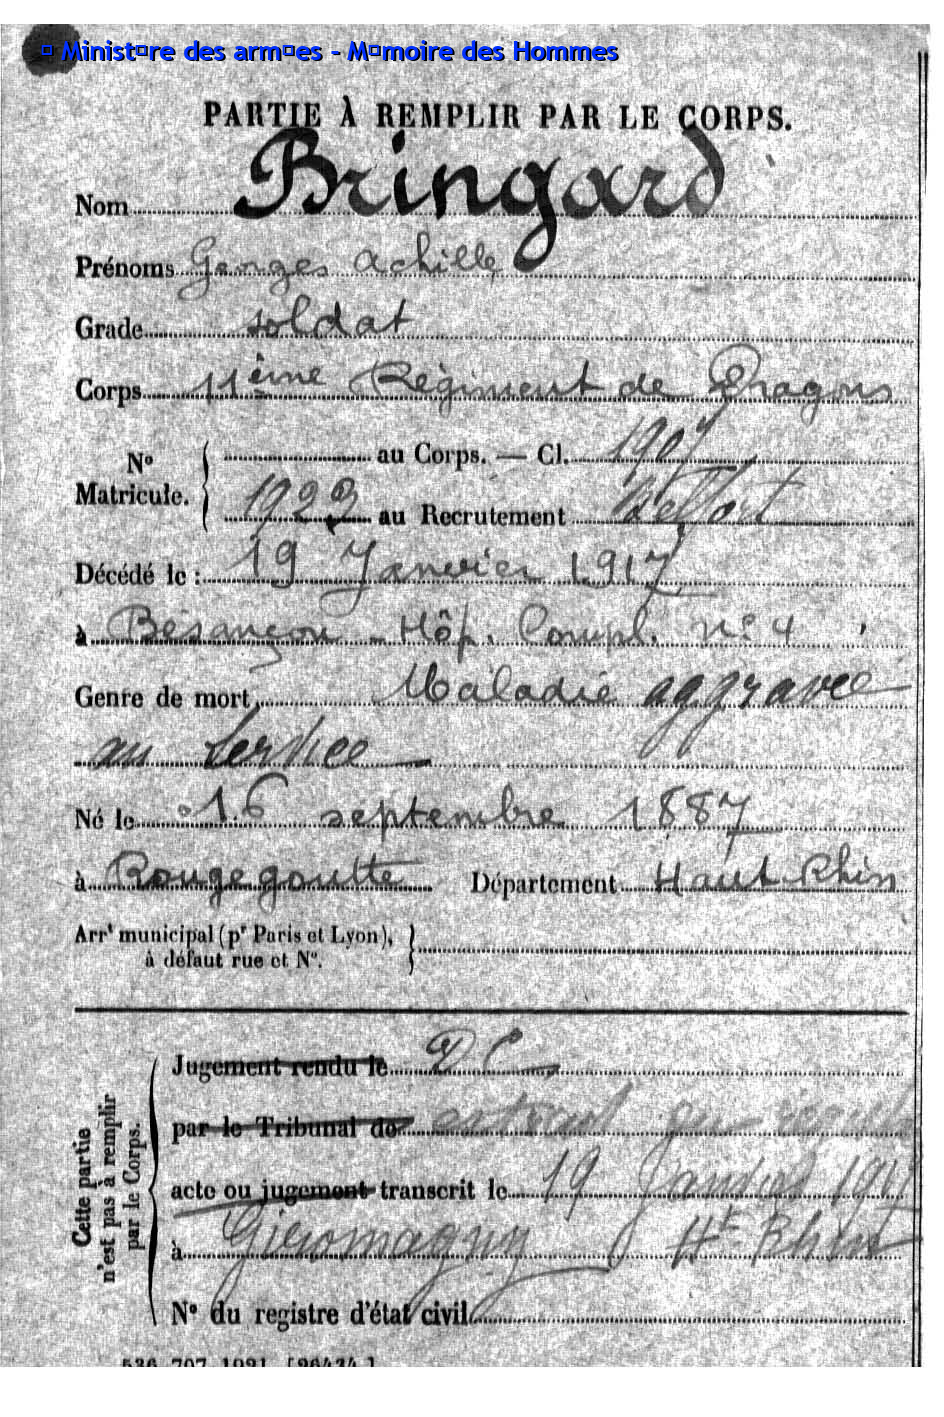 © Ministère des armées - Mémoire des Hommes
PARTIE À REMPLIR PAR LE CORPS.
Nom Bringard
Prénoms Georges Achille
Grade soldat
Corps 11ème Régiment de Dragons
N° Matricule. { au Corps. — Cl. 1907
1923 au Recrutement Belfort
Décédé le : 19 Janvier 1917
à Besançon - Hôp. Compl. N° 4
Genre de mort Maladie aggravée
au service
Né le 16 septembre 1887
à Rougegoutte Département Haut Rhin
Arrt municipal (pr Paris et Lyon),
à défaut rue et N°.
Cette partie n'est pas à remplir par le Corps.
Jugement rendu le D C
par le Tribunal de
acte ou jugement transcrit le 19 Janvier 1917
à Giromagny Ht Rhin
N° du registre d'état civil
536 707 1921. [26434.]